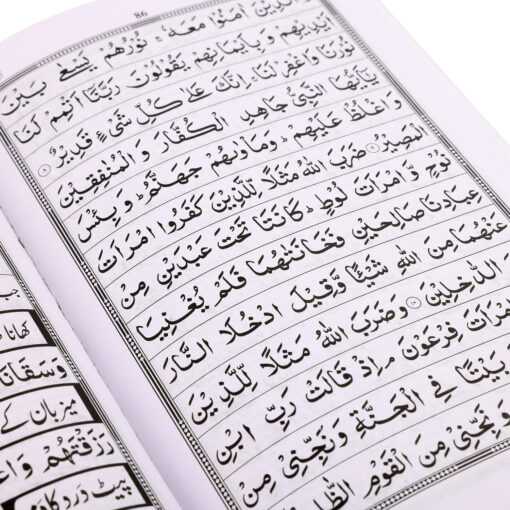 86
وَالَّذِيْنَ اٰمَنُوْا مَعَهٗ ۚ نُوْرُهُمْ يَسْعٰى بَيْنَ
اَيْدِيْهِمْ وَ بِاَيْمَانِهِمْ يَقُوْلُوْنَ رَبَّنَاۤ اَتْمِمْ لَنَا
نُوْرَنَا وَاغْفِرْ لَنَا ۚ اِنَّكَ عَلٰى كُلِّ شَیْءٍ قَدِيْرٌ ۝۸
يٰۤاَيُّهَا النَّبِيُّ جَاهِدِ الْكُفَّارَ وَ الْمُنٰفِقِيْنَ
وَ اغْلُظْ عَلَيْهِمْ ؕ وَ مَاْوٰىهُمْ جَهَنَّمُ ؕ وَ بِئْسَ
الْمَصِيْرُ ۝۹ ضَرَبَ اللّٰهُ مَثَلًا لِّلَّذِيْنَ كَفَرُوا امْرَاَتَ
نُوْحٍ وَّ امْرَاَتَ لُوْطٍ ؕ كَانَتَا تَحْتَ عَبْدَيْنِ مِنْ
عِبَادِنَا صَالِحَيْنِ فَخَانَتٰهُمَا فَلَمْ يُغْنِيَا
عَنْهُمَا مِنَ اللّٰهِ شَيْئًا وَّ قِيْلَ ادْخُلَا النَّارَ مَعَ
الدّٰخِلِيْنَ ۝۱۰ وَضَرَبَ اللّٰهُ مَثَلًا لِّلَّذِيْنَ
امْرَاَتَ فِرْعَوْنَ ۘ اِذْ قَالَتْ رَبِّ ابْنِ
بَيْتًا فِي الْجَنَّةِ وَ نَجِّنِيْ مِنْ
وَ نَجِّنِيْ مِنَ الْقَوْمِ
کھانا
وَسَقَانَا
میزبان کے
رَزَقْتَهُمْ وَاغْ